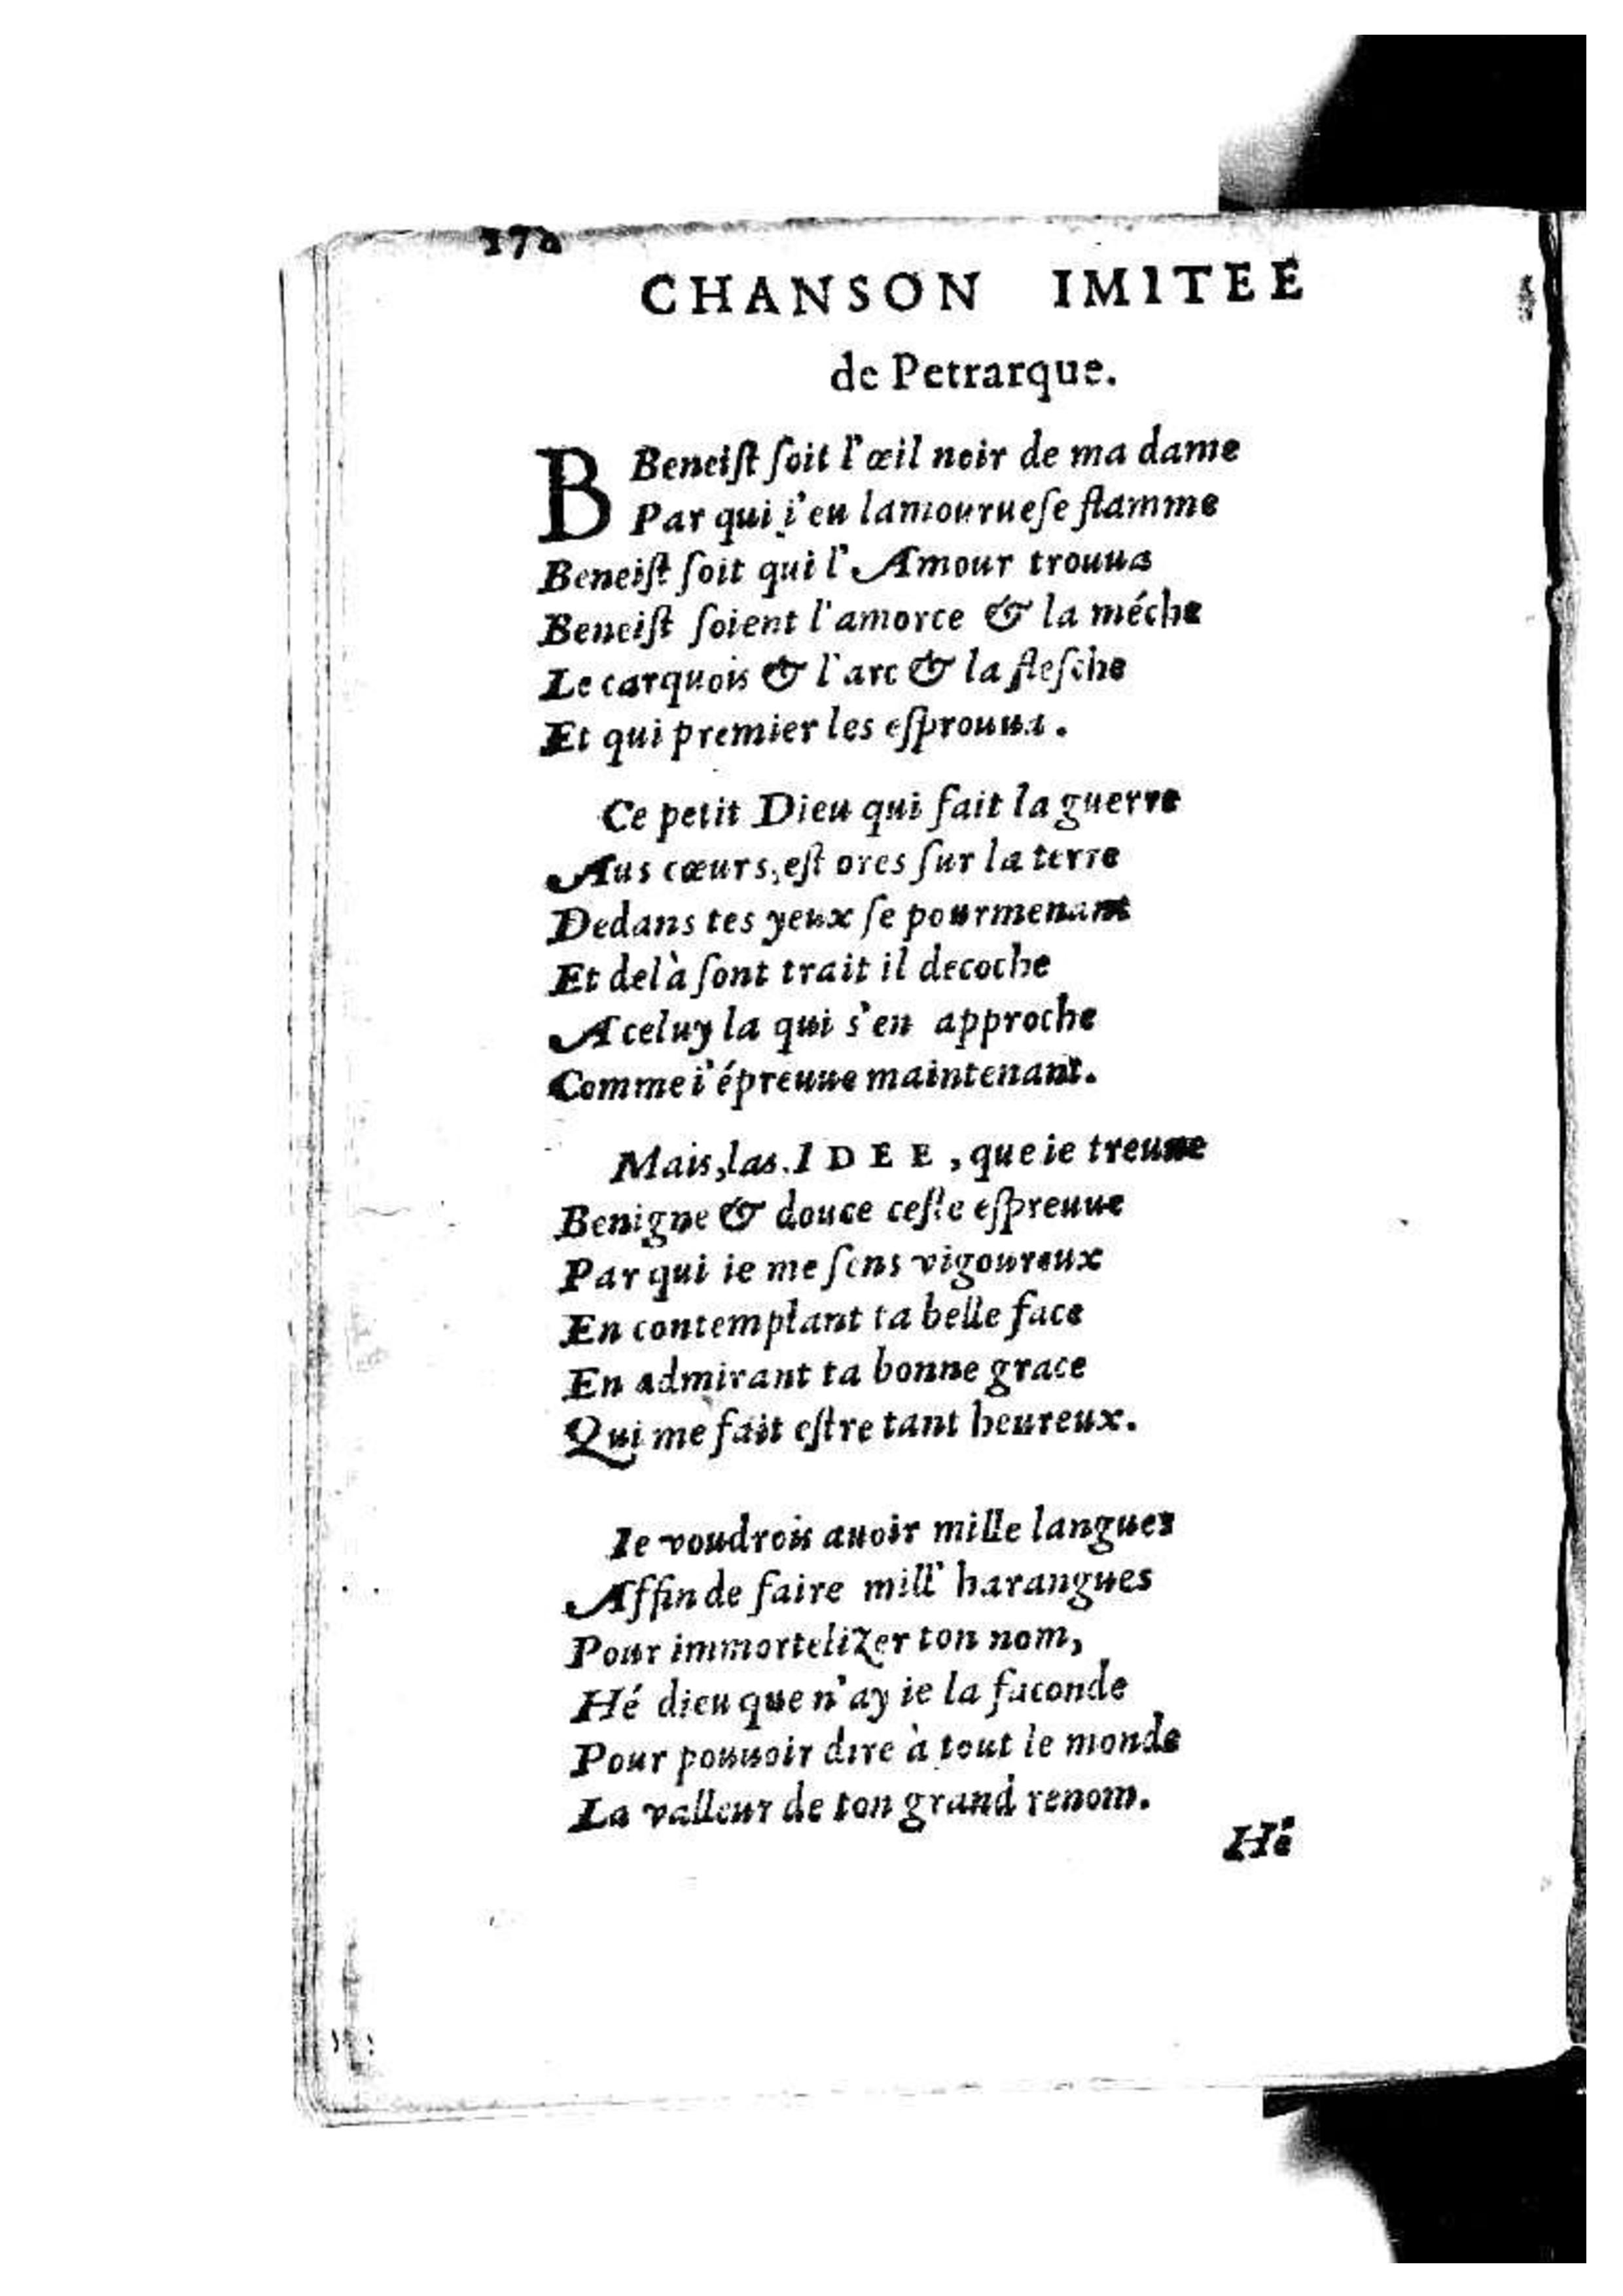 170
CHANSON IMITEE
de Petrarque.
B Beneiſt ſoit l'œil noir de ma dame
Par qui i'eu lamourueſe flamme
Beneiſt ſoit qui l'Amour trouua
Beneiſt ſoient l'amorce & la méche
Le carquois & l'arc & la fleſche
Et qui premier les eſprouua.
Ce petit Dieu qui fait la guerre
Aus cœurs, eſt ores ſur la terre
Dedans tes yeux ſe pourmenant
Et delà ſont trait il decoche
A celuy la qui s'en approche
Comme i'épreuue maintenant.
Mais, las. IDEE, que ie treuue
Benigne & douce ceſte eſpreuue
Par qui ie me ſens vigoureux
En contemplant ta belle face
En admirant ta bonne grace
Qui me fait eſtre tant heureux.
Ie voudrois auoir mille langues
Affin de faire mill' harangues
Pour immortelizer ton nom,
Hé dieu que n'ay ie la faconde
Pour pouuoir dire à tout le monde
La valleur de ton grand renom.
Hé